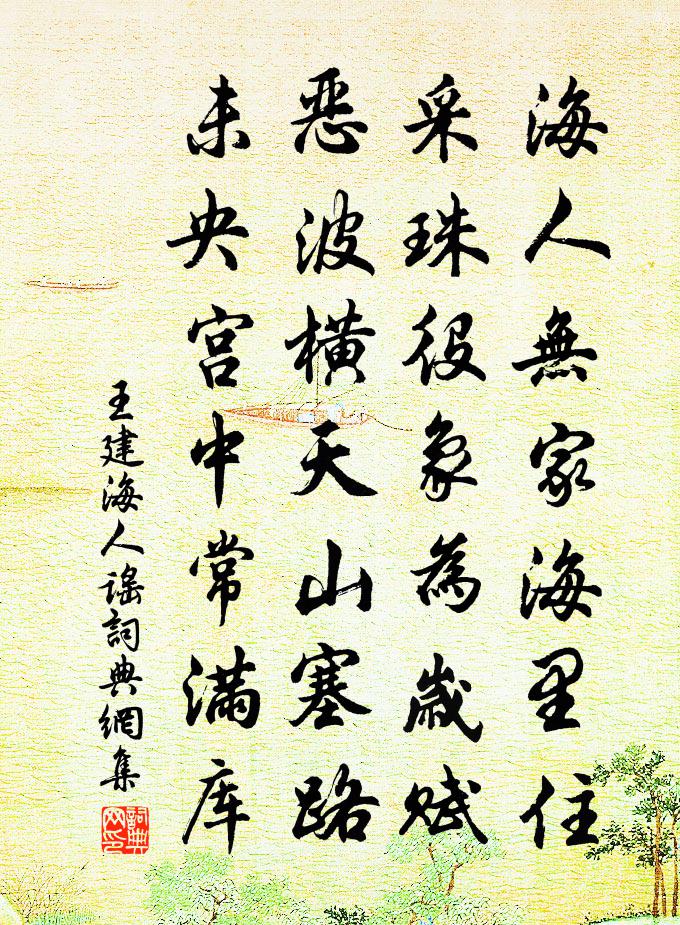 海人無家海里住
采珠役象為歲赋
恶波橫天山塞路
未央宫中常满库
王建海人謠詞典網集
詞典网印